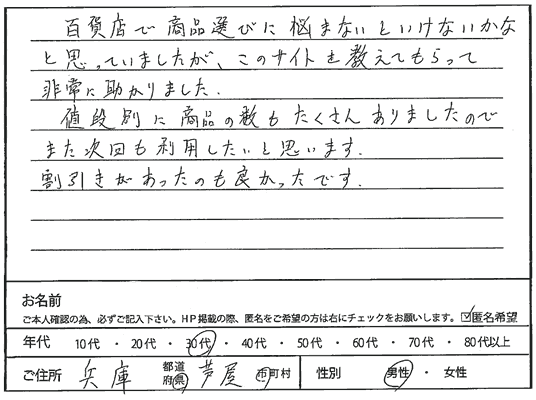 百貨店で商品選びに悩まないといけないかな
と思っていましたが、このサイトを教えてもらって
非常に助かりました.
値段別に商品の数もたくさんありましたので
また次回も利用したいと思います.
割引きがあったのも良かったです.
お名前
ご本人確認の為、必ずご記入下さい。HP掲載の際、匿名をご希望の方は右にチェックをお願いします。☑匿名希望
年代 10代 ・ 20代 ・ 30代 ・ 40代 ・ 50代 ・ 60代 ・ 70代 ・ 80代以上
ご住所 兵庫 都道府県 芦屋 市町村 性別 男性 ・ 女性